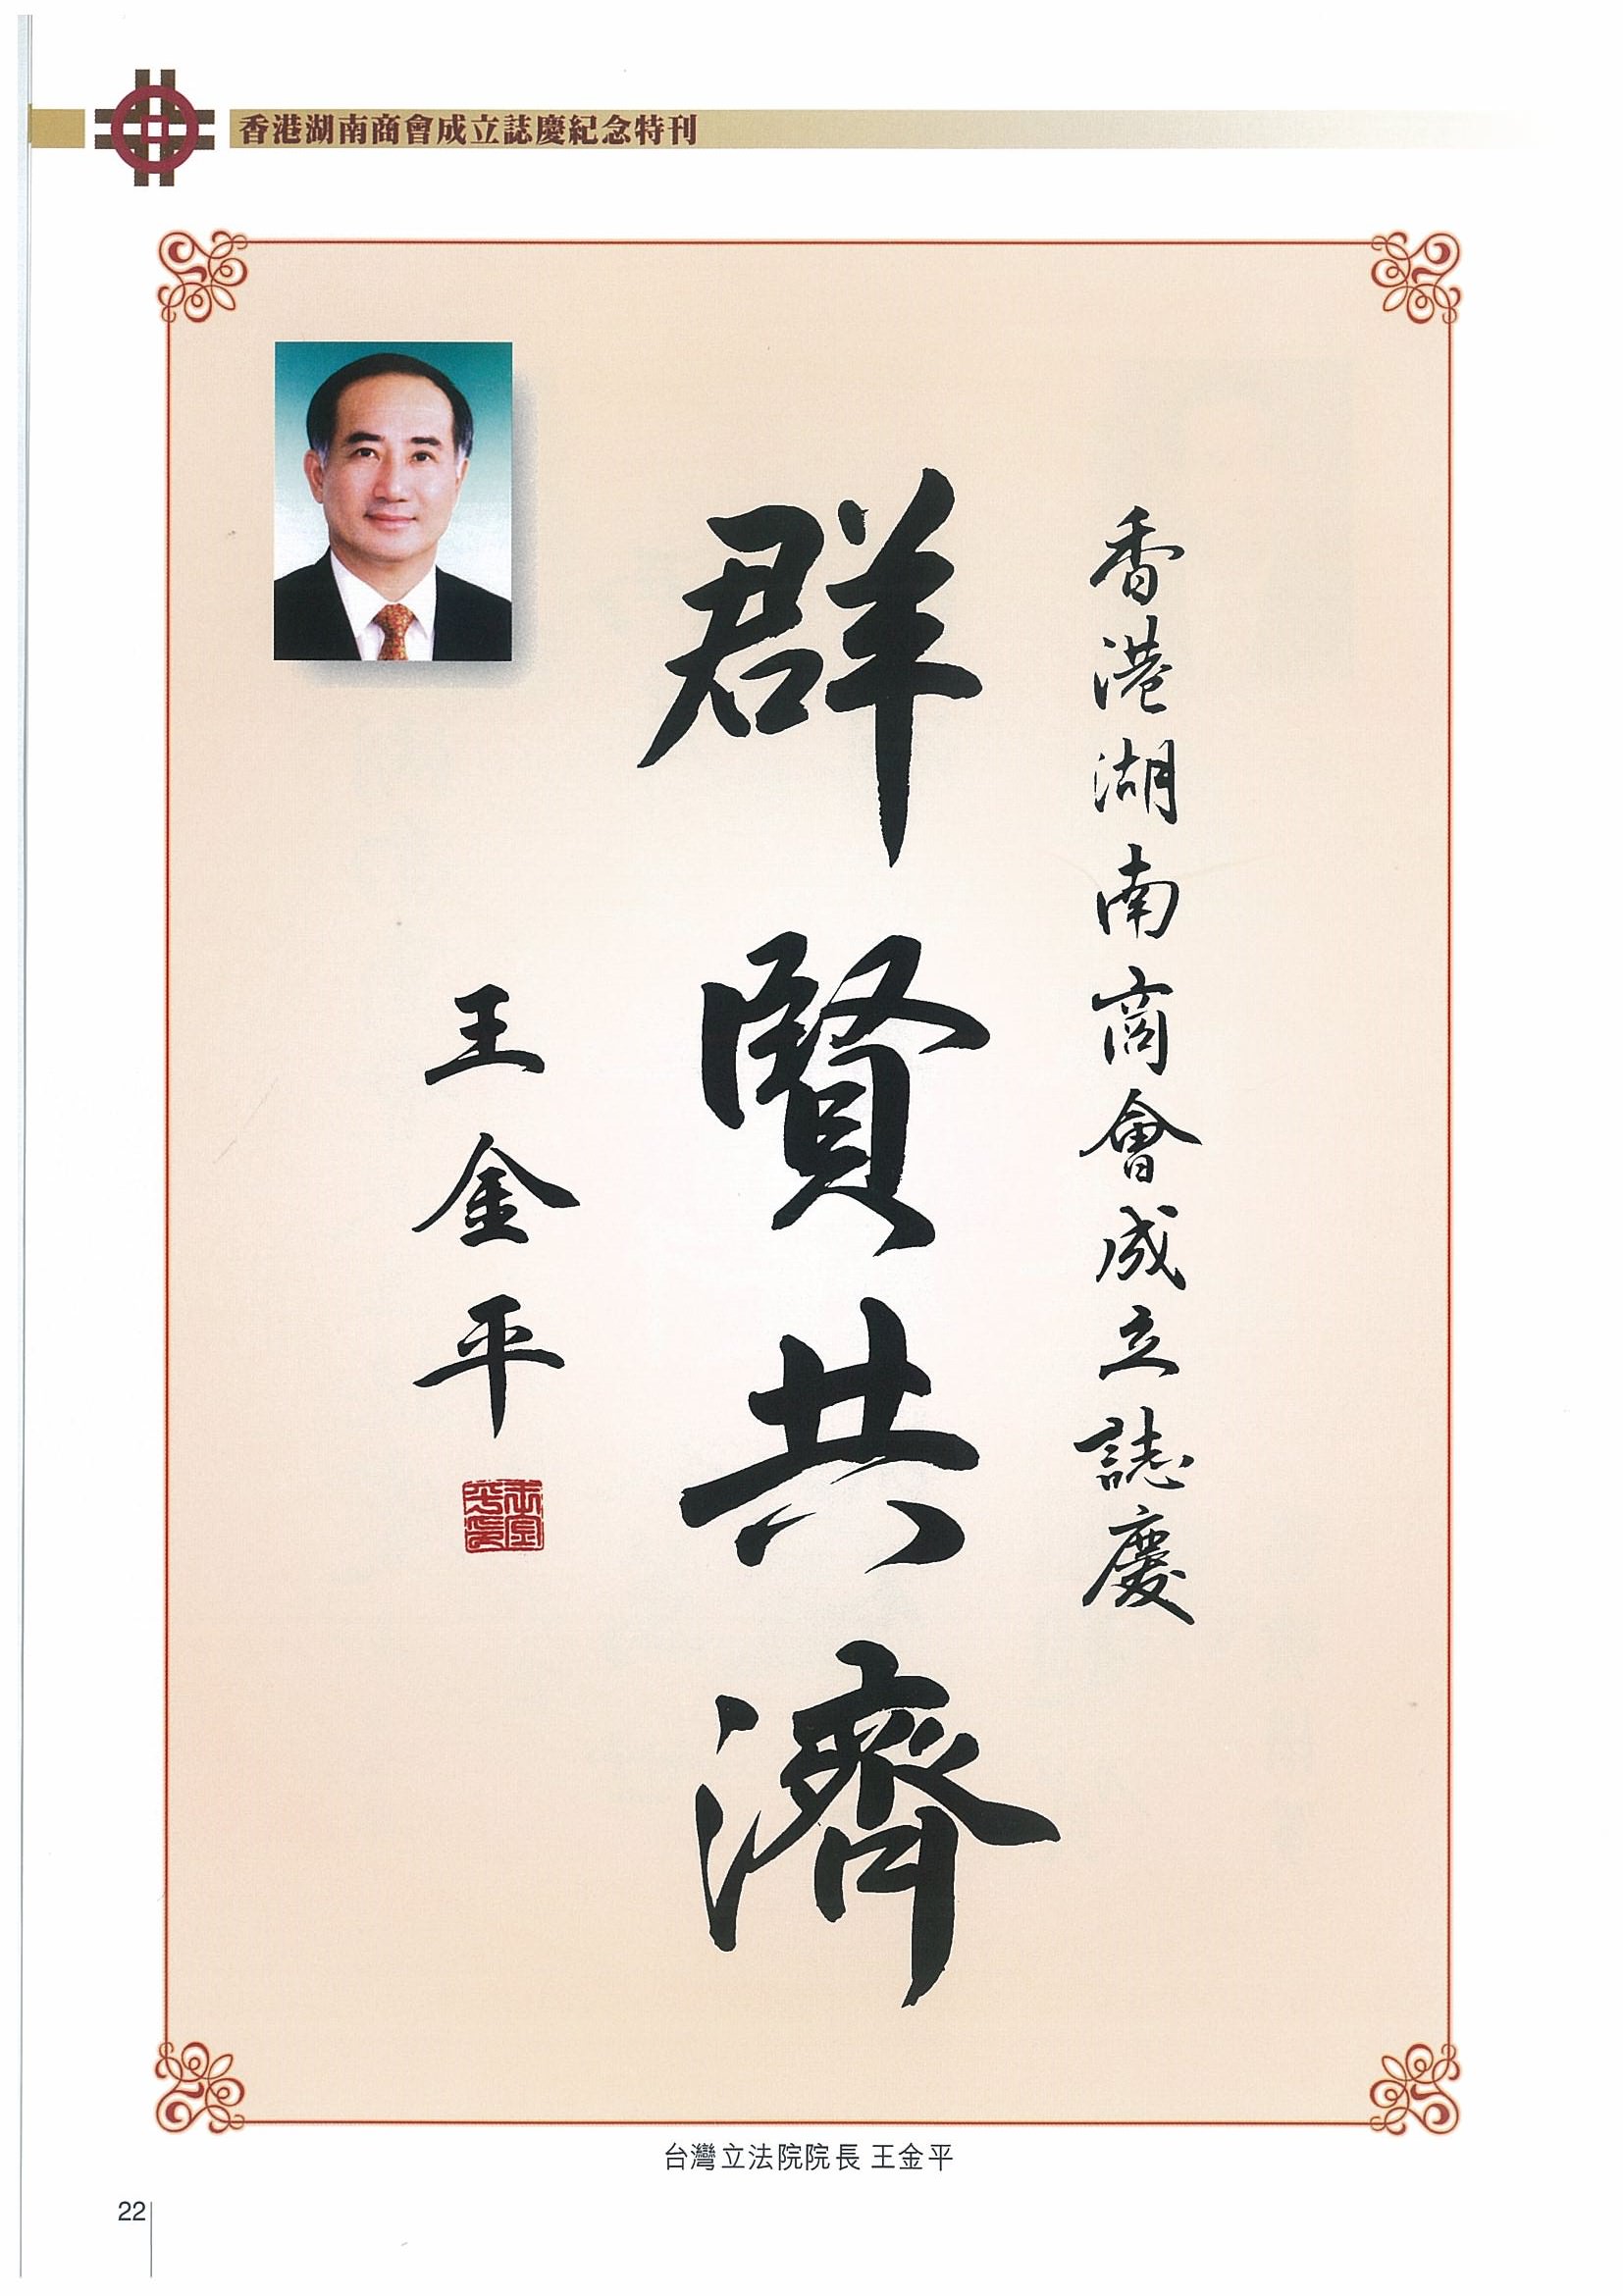 香港湖南商會成立誌慶紀念特刊
香港湖南商會成立誌慶
群賢共濟
王金平
台灣立法院院長 王金平
22